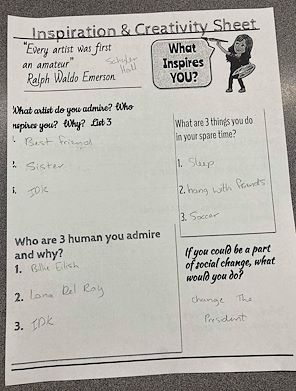 Inspiration & Creativity Sheet
"Every artist was first
an amateur"
Ralph Waldo Emerson
What
Inspires
YOU?
What artist do you admire? Who
nspires you? Why? List 3
1. Best friend
2. Sister
3. IDK
What are 3 things you do
in your spare time?
1. Sleep
2. hang with friends
3. Soccer
Who are 3 human you admire
and why?
1. Billie Eilish
2. Lana Del Ray
3. IDK
If you could be a part
of social change, what
would you do?
change The
President